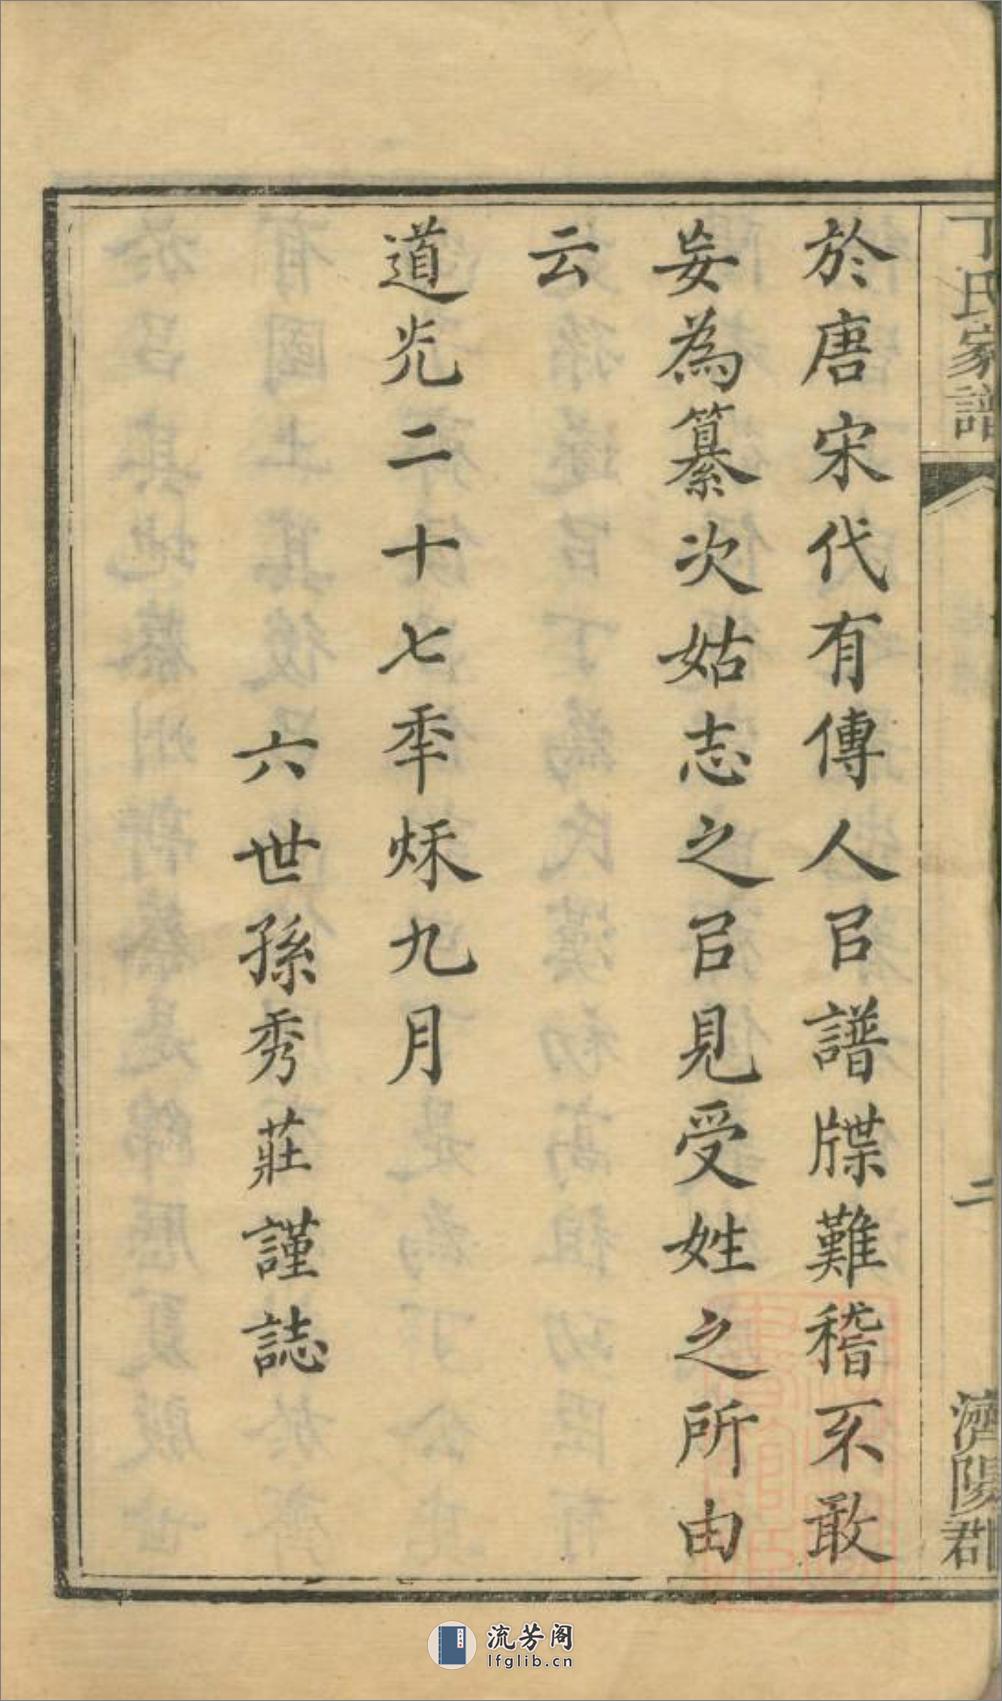 於唐宋代有傳人㠯譜牒難稽不敢
妄為纂次姑志之㠯見受姓之所由
云
道光二十七年秌九月
六世孫秀莊謹誌
丁氏家譜
二
濟陽郡
流芳阁
lfglib.cn